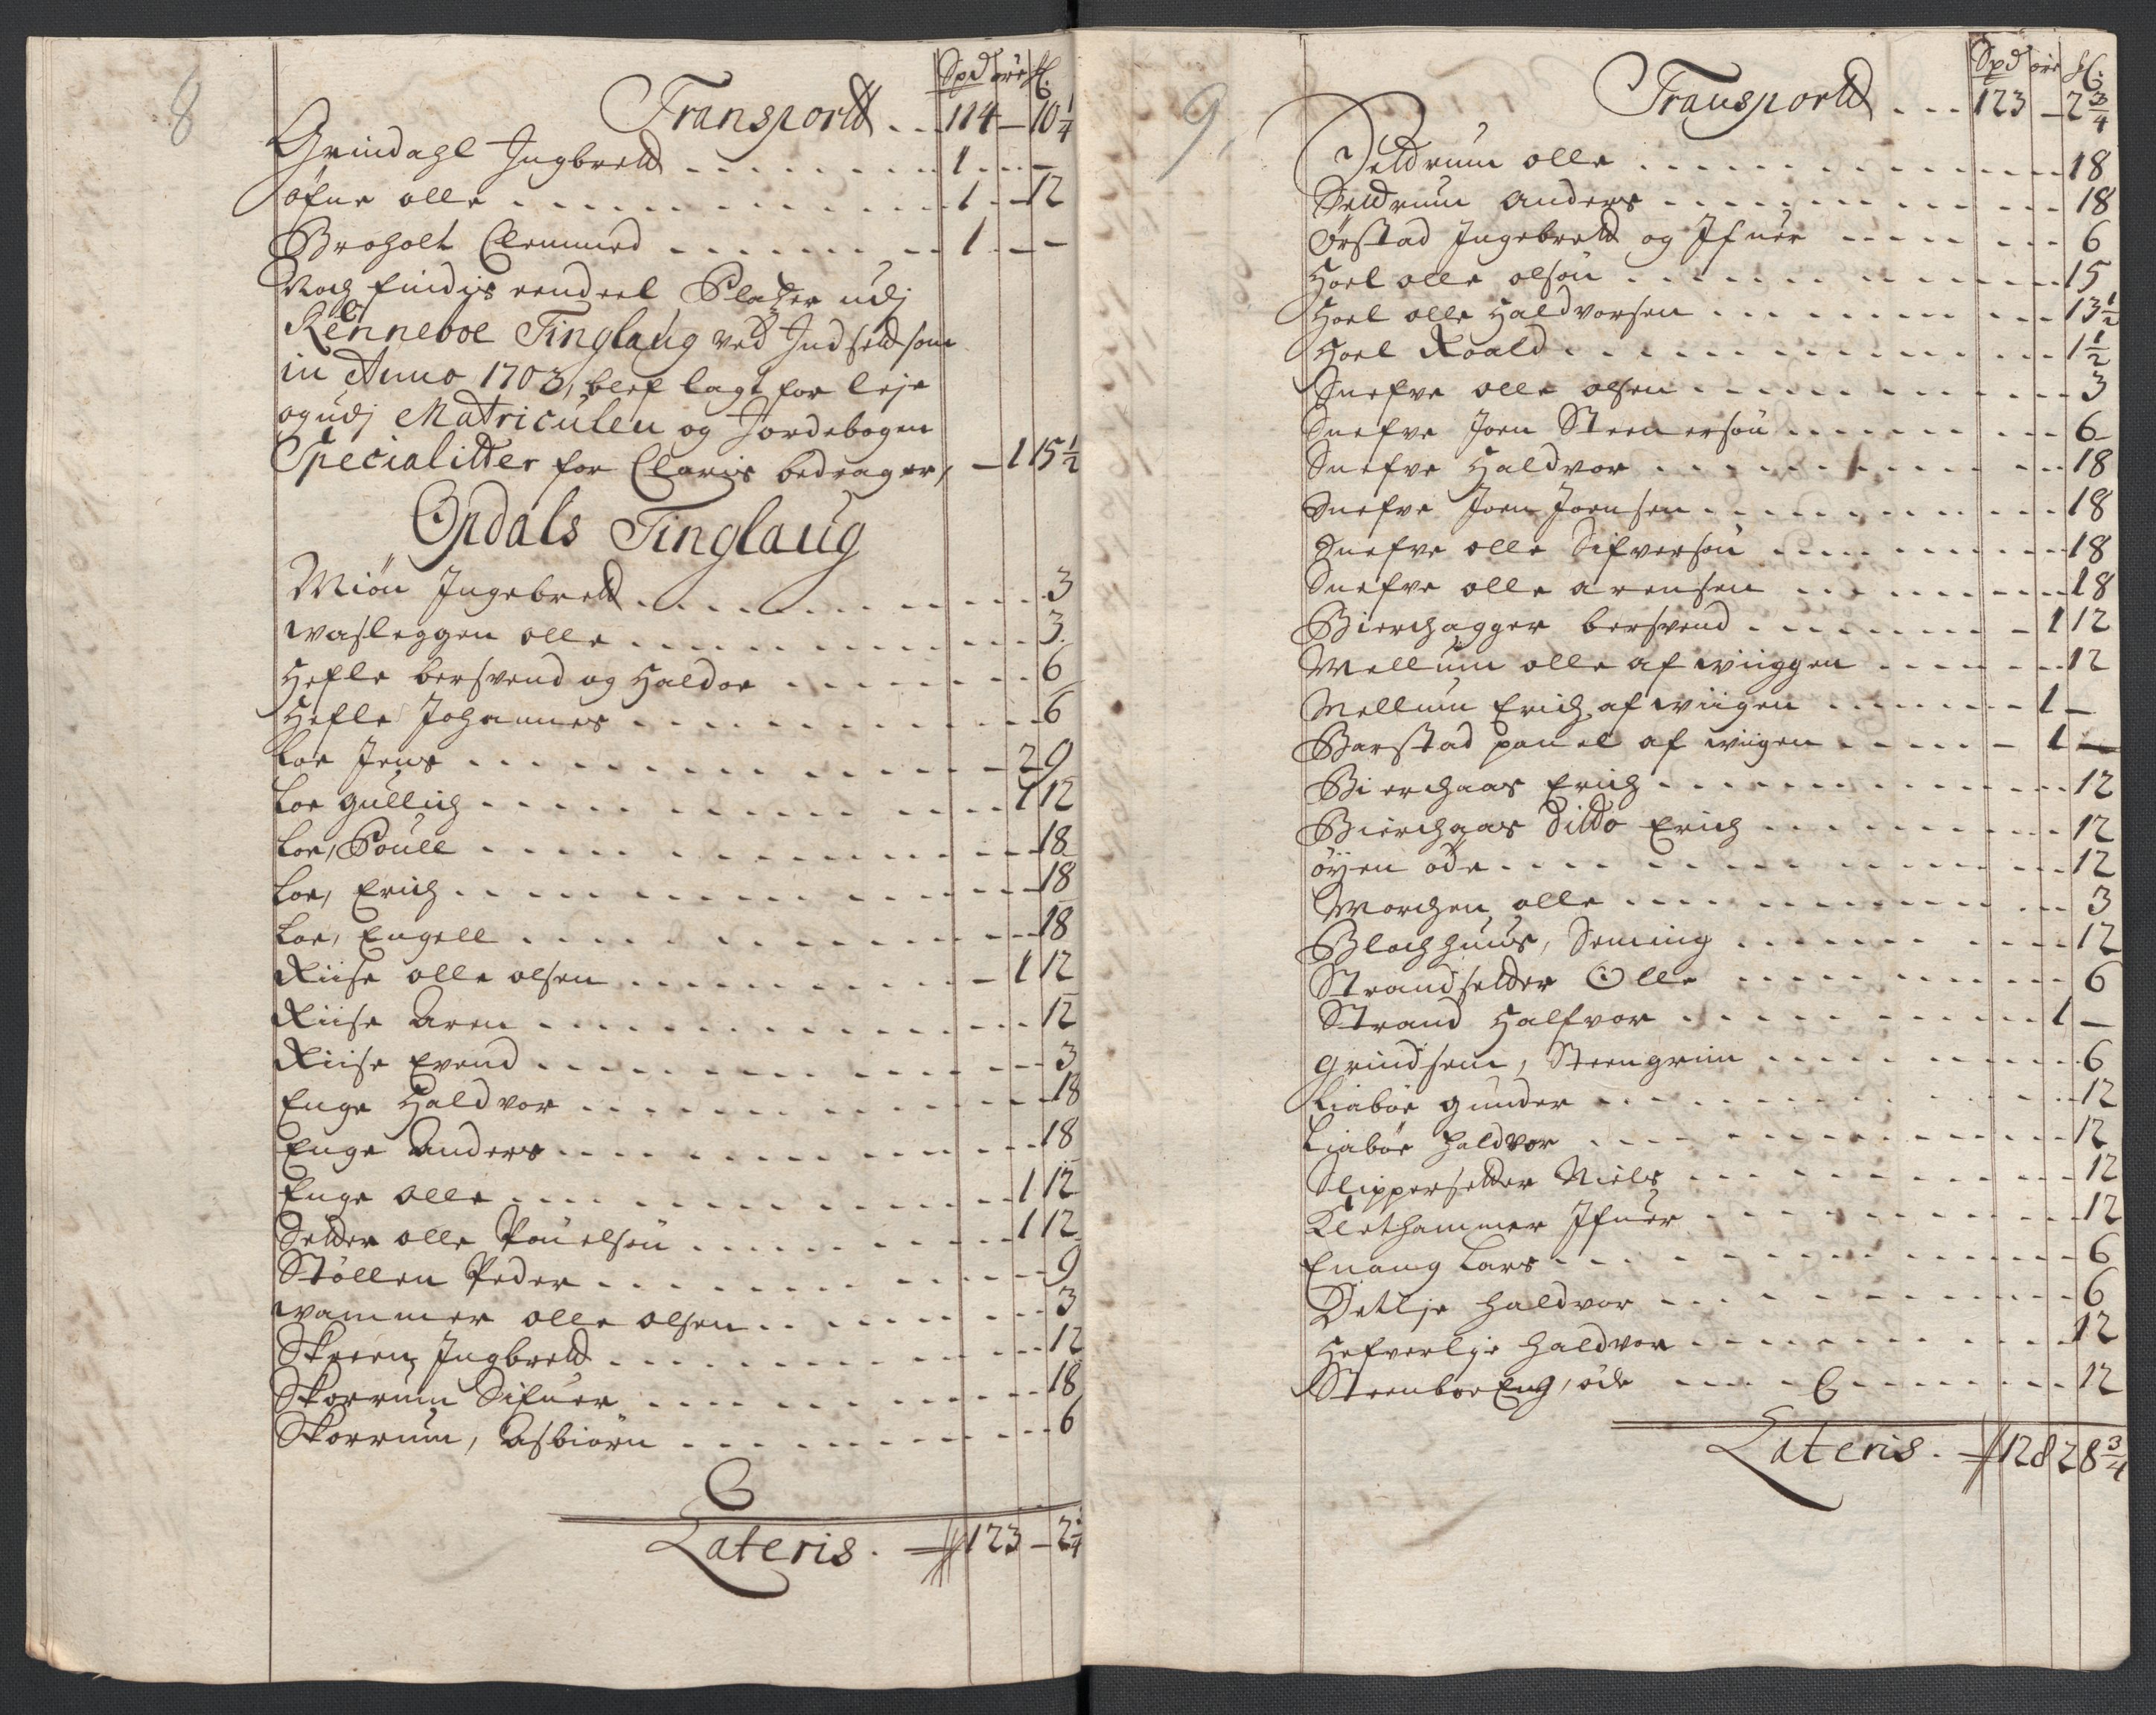 8
Spd öre sl.
Transportt . . 114 — 10 1/4
Grindahl Ingbrett . . . 1 . . —
öfne olle . . . 1 . — 12
Broholt Clemmed . . . 1 . . —
Noch findis eendeel Pladtzer udj
Renneboe Tinglaug ved Indset som
in Anno 1703, blef lagt for leje
og udj Matriculen og Jordebogen
Specialitter for Claris bedrager, — 1 15 1/2
Opdals Tinglaug
Miön Ingebrett . . . 3
wasleggen olle . . . 3
Hefle bersvend og Haldor . . . 6
Hefle Johannes . . . 6
Loe Jens . . . 2 9
Loe gullich . . . 1 12
Loe, Pouel . . . 18
Loe, Erich . . . 18
Loe, Engell . . . 18
Riise olle olsen . . . 1 12
Riise Aren . . . 12
Riise Evend . . . 3
Enge Haldvor . . . 18
Enge Anders . . . 18
Enge olle . . . 1 12
Setter olle Pouelsön . . . 1 12
Stöllen Peder . . . 9
wammer olle olsen . . . 3
Skreen Ingbrett . . . 12
Skorrum Sifuer . . . 18
Skorrum, Asbiörn . . . 6
Lateris . 123 — 2 3/4
9
Spd öre sl.
Transportt . . . 123 — 2 3/4
Seldrum olle . . . 18
Seldrum Anders . . . 18
Örstad Ingebrett og Ifuer . . . 6
Hoel olle olsön . . . 15
Hoel olle Haldvorsen . . . 13 1/2
Hoel Roald . . . 1 1/2
Snefve olle olsen . . . 3
Snefve Joen Steenersön . . . 6
Snefve Haldvor . . . 18
Snefve Joen Joensen . . . 18
Snefve olle Sifversön . . . 18
Snefve olle arensen . . . 18
Bierchagger bersvend . . . 1 12
Mellum olle af wiiggen . . . 12
Mellum Erich af wiigen . . . 1 —
Barstad pouel af wiigen . . . 1 —
Bierchaas Erich . . . 12
Bierchaas Ditto Erich . . . 12
öyen öde . . . 12
Morchen olle . . . 3
Blochhuus, Seming . . . 12
Strandsetter Olle . . . 6
Strand Halfvor . . . 1 —
grindsem, Steengrim . . . 6
Liaböe gunder . . . 12
Liaböe Haldvor . . . 12
Slippersetter Niels . . . 12
Klethammer Ifuer . . . 12
Enang Lars . . . 6
Detlje Haldvor . . . 6
Hefverlje Haldvor . . . 12
Steenboe Eng, öde . . . 12
Lateris . 128 2 8 3/4